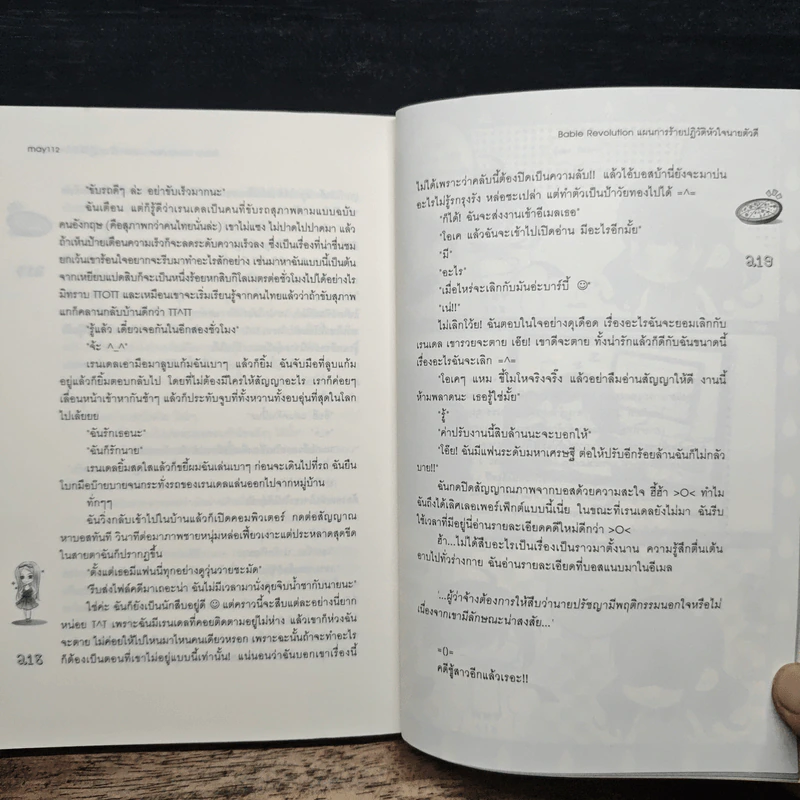 may112
"ขับรถดีๆ ล่ะ อย่าขับเร็วมากนะ"
ฉันเตือน แต่ก็รู้ดีว่าเรนเดลเป็นคนที่ขับรถสุภาพตามแบบฉบับ
คนอังกฤษ (คือสุภาพกว่าคนไทยนั่นล่ะ) เขาไม่แซง ไม่ปาดไปปาดมา แล้ว
ถ้าเห็นป้ายเตือนความเร็วก็จะลดระดับความเร็วลง ซึ่งเป็นเรื่องที่น่าชื่นชม
ยกเว้นเขาร้อนใจอยากจะรีบมาทำอะไรสักอย่าง เช่นมาหาฉันแบบนี้เป็นต้น
จากเหยียบแปดสิบก็จะเป็นหนึ่งร้อยหกสิบกิโลเมตรต่อชั่วโมงไปได้อย่างไร
มิทราบ TTOTT และเหมือนเขาจะเริ่มเรียนรู้จากคนไทยแล้วว่าถ้าขับสุภาพ
มากก็คลานกลับบ้านดีกว่า TT^TT
"รู้แล้ว เดี๋ยวเจอกันในอีกสองชั่วโมง"
"จ้ะ ^_^"
เรนเดลเอามือมาลูบแก้มฉันเบาๆ แล้วก็ยิ้ม ฉันจับมือที่ลูบแก้ม
อยู่แล้วก็ยิ้มตอบกลับไป โดยที่ไม่ต้องมีใครให้สัญญาอะไร เราก็ค่อยๆ
เลื่อนหน้าเข้าหากันช้าๆ แล้วก็ประทับจูบที่ทั้งหวานทั้งอบอุ่นที่สุดในโลก
ไปเล้ยยย
"ฉันรักเธอนะ"
"ฉันก็รักนาย"
เรนเดลยิ้มสดใสแล้วก็ขยี้ผมฉันเล่นเบาๆ ก่อนจะเดินไปที่รถ ฉันยืน
โบกมือบ๊ายบายจนกระทั่งรถของเรนเดลแล่นออกไปจากหมู่บ้าน
ทักๆๆ
ฉันวิ่งกลับเข้าไปในบ้านแล้วก็เปิดคอมพิวเตอร์ กดต่อสัญญาณ
หาบอสทันที วินาทีต่อมาภาพชายหนุ่มหล่อเฟี้ยวเงาะแต่ประหลาดสุดขีด
ในสายตาฉันก็ปรากฏขึ้น
"ตั้งแต่เธอมีแฟนนี่ทุกอย่างดูวุ่นวายชะมัด"
"รีบส่งไฟล์คดีมาเถอะน่า ฉันไม่มีเวลามานั่งคุยจิบน้ำชากับนายนะ"
ใช่ค่ะ ฉันก็ยังเป็นนักสืบอยู่ดี ☺ แต่คราวนี้จะสืบแต่ละอย่างนี่ยาก
หน่อย T^T เพราะฉันมีเรนเดลที่คอยติดตามอยู่ไม่ห่าง แล้วเขาก็ห่วงฉัน
จะตาย ไม่ค่อยให้ไปไหนมาไหนคนเดียวหรอก เพราะฉะนั้นถ้าจะทำอะไร
ก็ต้องเป็นตอนที่เขาไม่อยู่แบบนี้เท่านั้น! แน่นอนว่าฉันบอกเขาเรื่องนี้
218
Bable Revolution แผนการร้ายปฏิวัติหัวใจนายตัวดี
ไม่ได้เพราะว่าคลับนี้ต้องปิดเป็นความลับ!! แล้วไอ้บอสบ้านี่ยังจะมาบ่น
อะไรไม่รู้รกรุงรัง หล่อซะเปล่า แต่ทำตัวเป็นป้าวัยทองไปได้ =^=
"ก็ได้! ฉันจะส่งงานเข้าอีเมลเธอ"
"โอเค แล้วฉันจะเข้าไปเปิดอ่าน มีอะไรอีกมั้ย"
"มี"
"อะไร"
"เมื่อไหร่จะเลิกกับมันอ่ะบาร์บี้ ☺"
"เน่!!"
ไม่เลิกโว้ย! ฉันตอบในใจอย่างดุเดือด เรื่องอะไรฉันจะยอมเลิกกับ
เรนเดล เขารวยจะตาย เอ๊ย! เขาดีจะตาย ทั้งน่ารักแล้วก็ดีกับฉันขนาดนี้
เรื่องอะไรฉันจะเลิก =^=
"โอเคๆ แหม ขี้โมโหจริงจริ๊ง แล้วอย่าลืมอ่านสัญญาให้ดี งานนี้
ห้ามพลาดนะ เธอรู้ใช่มั้ย"
"รู้"
"ค่าปรับงานนี้สิบล้านนะจะบอกให้"
"โอ๊ย! ฉันมีแฟนระดับมหาเศรษฐี ต่อให้ปรับอีกร้อยล้านฉันก็ไม่กลัว
นาย!!"
ฉันกดปิดสัญญาณภาพจากบอสด้วยความสะใจ ฮี้ฮ้า >O< ทำไม
ฉันถึงได้เลิศเลอเพอร์เฟ็กต์แบบนี้เนี่ย ในขณะที่เรนเดลยังไม่มา ฉันรีบ
ใช้เวลาที่มีอยู่นี่อ่านรายละเอียดคดีใหม่ดีกว่า >O<
ฮ้า...ไม่ได้สืบอะไรเป็นเรื่องเป็นราวมาตั้งนาน ความรู้สึกตื่นเต้น
อาบไปทั่วร่างกาย ฉันอ่านรายละเอียดที่บอสแนบมาในอีเมล
'...ผู้ว่าจ้างต้องการให้สืบว่านายปรัชญามีพฤติกรรมนอกใจหรือไม่
เนื่องจากเขามีลักษณะน่าสงสัย...'
=()=
คดีชู้สาวอีกแล้วเรอะ!!
219